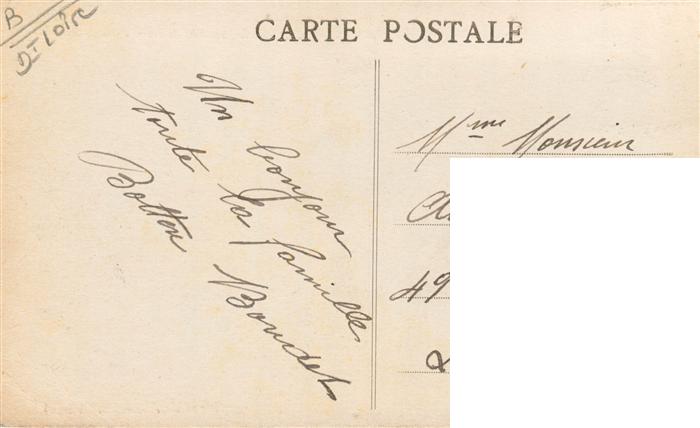 B
Dt Loire
CARTE POSTALE
Un bonjour
toute la famille
Botton Boudet
Mme Monsieur
49